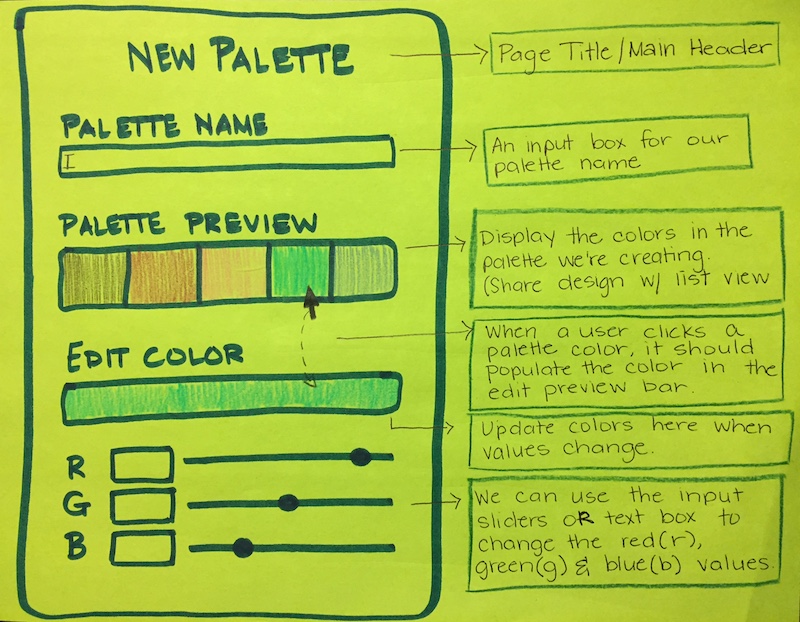 NEW PALETTE
Page Title/Main Header
PALETTE NAME
An input box for our
palette name
PALETTE PREVIEW
Display the colors in the
palette we're creating.
(Share design w/ list view
When a user clicks a
palette color, it should
populate the color in the
edit preview bar.
EDIT COLOR
Update colors here when
values change.
R
G
B
We can use the input
sliders OR text box to
change the red(r),
green(g) & blue(b) values.